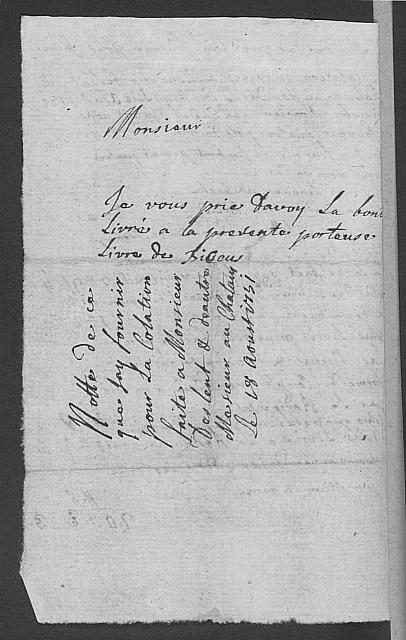 Monsieur
Je vous prie Davoy La bon
Livré a la presente porteuse
Livre de
Notte de ce
que Jay fournir
pour La Colation
faite a Monsieur
Deslent & dautre
Mesieur au Chatau
Le 18 Aoust 1751